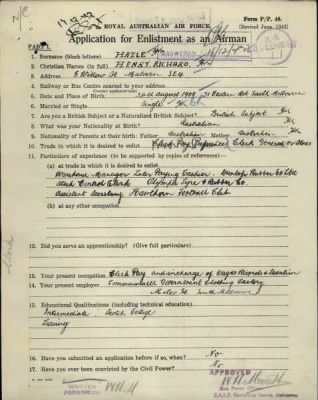 N/C
17.12.42
Form P/P. 48.
(Revised June, 1941)
ROYAL AUSTRALIAN AIR FORCE.
Application for Enlistment as an Airman
PART 1.
ANSWERED
1. Surname (block letters) HAZLE
2. Christian Names (in full) HENRY, RICHARD,
3. Address 8 Willow St. Malvern SE4
Railway or Bus Centre nearest to your address
4. Date and Place of Birth 12th August 1909 South Melbourne
5. Married or Single Single
7. Are you a British Subject or a Naturalised British Subject? British Subject
8. What was your Nationality at Birth? Australian
9. Nationality of Parents at their birth: Father Australian Mother Australian
10. Trade in which it is desired to enlist Clerk Pay (Preferred) Clerk General or Stores
11. Particulars of experience (to be supported by copies of references)—
a) at trade in which it is desired to enlist
Warehouse Manager Later Paying Cashier. Dunlop Rubber Co Ltd
and Clerk Olympic Tyre & Rubber Co.
Assistant Secretary Hawthorn Football Club
(b) at any other occupation.
12. Did you serve an apprenticeship? (Give full particulars)
Clerk
13. Your present occupation Clerk Pay and in charge of Wages Records & Taxation
14. Your present employer Commonwealth Government Clothing Factory
Miles St. South Melbourne
15. Educational Qualifications (including technical education)
Intermediate College
16. Have you submitted an application before if so, when? No
17. Have you ever been convicted by the Civil Power? No
APPROVED
WRITTEN
R.A.A.F. Recruiting Centre, Melbourne